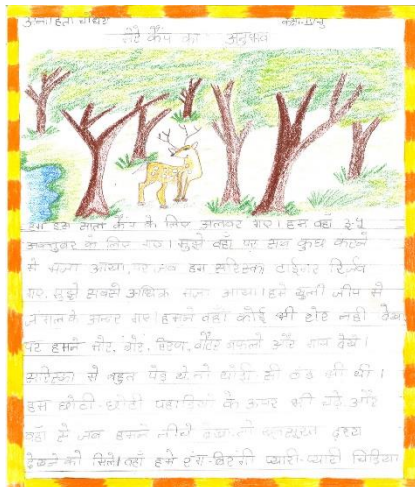 मेरे कैंप का अनुभव
हम इस साल कैंप के लिए अलवर गए। हम वहाँ
अक्तूबर के लिए गए। मुझे वहाँ पर सब कुछ करने
में मजा आया, पर जब हम सरिस्का टाईगर रिर्जव
गए, मुझे सबसे अधिक मजा आया। हम खुली जीप में
जंगल के अन्दर गए। हमने वहाँ कोई भी शेर नहीं देखा
पर हमने मोर, हिरण, और गाय देखे।
सरिस्का में बहुत पेड़ थे, तो थोड़ी सी ठंड भी थी।
हम छोटी-छोटी पहाड़ियों के ऊपर भी चढ़े और
वहाँ से जब हमने नीचे देखा तो दृश्य
देखने को मिले। वहाँ हमे रंग-बिरंगी प्यारी-प्यारी चिड़िया